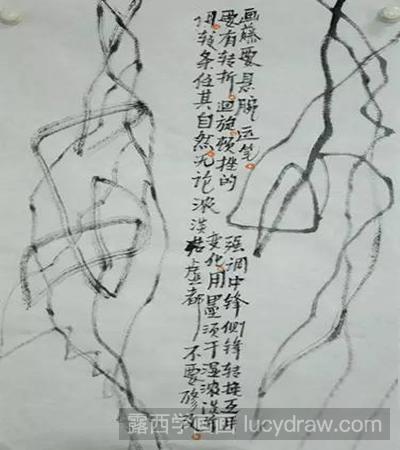 画藤要悬腕运笔。强调中锋侧锋转换互用
要有转折。迴旋。顿挫的变化。用墨须干湿浓淡并
用。枝条任其自然。无论浓淡枯虚都不要修改。
露西学画画 lucydraw.com